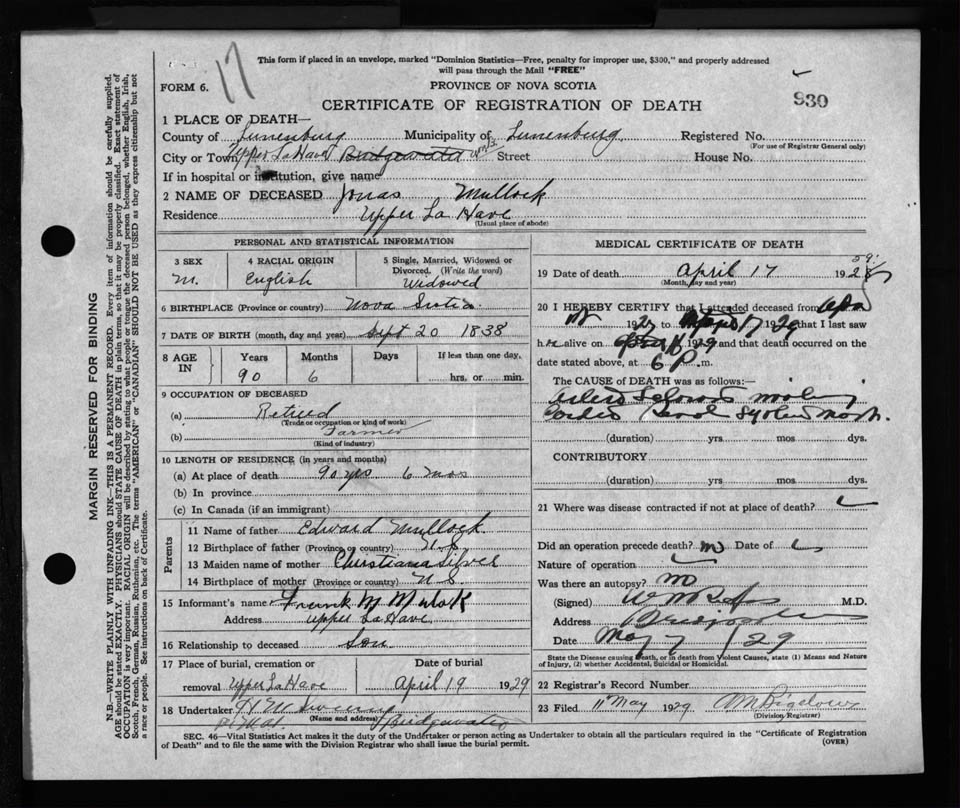 17
This form if placed in an envelope, marked "Dominion Statistics—Free, penalty for improper use, $300," and properly addressed
will pass through the Mail "FREE"
FORM 6.
PROVINCE OF NOVA SCOTIA
930
CERTIFICATE OF REGISTRATION OF DEATH
1 PLACE OF DEATH—
County of Lunenburg Municipality of Lunenburg Registered No.
(For use of Registrar General only)
City or Town Upper LaHave Bridgewater Street House No.
If in hospital or institution, give name
2 NAME OF DECEASED Jonas Mullock
Residence Upper La Have
(Usual place of abode)
PERSONAL AND STATISTICAL INFORMATION
3 SEX 4 RACIAL ORIGIN 5 Single, Married, Widowed or
Divorced. (Write the word)
M. English Widowed
6 BIRTHPLACE (Province or country) Nova Scotia
7 DATE OF BIRTH (month, day and year) Sept 20 1838
8 AGE IN Years Months Days If less than one day,
90 6 hrs. or min.
9 OCCUPATION OF DECEASED
(a) Retired
(Trade or occupation or kind of work)
(b) Farmer
(Kind of industry)
10 LENGTH OF RESIDENCE (in years and months)
(a) At place of death 90 yrs 6 mos
(b) In province
(c) In Canada (if an immigrant)
Parents
11 Name of father Edward Mullock
12 Birthplace of father (Province or country) N.S.
13 Maiden name of mother Christiana Silver
14 Birthplace of mother (Province or country) N S
15 Informant's name Frank M Mulok
Address Upper LaHave
16 Relationship to deceased Son
17 Place of burial, cremation or removal Upper LaHave Date of burial April 19 1929
18 Undertaker
(Name and address) Bridgewater
MEDICAL CERTIFICATE OF DEATH
19 Date of death April 17 192
(Month, day and year)
20 I HEREBY CERTIFY that I attended deceased from
192 to 17 1929 that I last saw
h alive on 1929 and that death occurred on the
date stated above, at 6 P. m.
The CAUSE OF DEATH was as follows:
(duration) yrs. mos. dys.
CONTRIBUTORY
(duration) yrs. mos. dys.
21 Where was disease contracted if not at place of death?
Did an operation precede death? no Date of
Nature of operation
Was there an autopsy? no
(Signed) M.D.
Address Bridgewater
Date May 7 / 29
State the Disease causing Death, or in death from Violent Causes, state (1) Means and Nature
of Injury, (2) whether Accidental, Suicidal or Homicidal.
22 Registrar's Record Number
23 Filed 11 May 1929 Bigelow
(Division Registrar)
SEC. 46—Vital Statistics Act makes it the duty of Undertaker or person acting as Undertaker to obtain all the particulars required in the "Certificate of Registration
of Death" and to file the same with the Division Registrar who shall issue the burial permit.
(OVER)
MARGIN RESERVED FOR BINDING
N.B.—WRITE PLAINLY WITH UNFADING INK—THIS IS A PERMANENT RECORD. Every item of information should be carefully supplied.
AGE should be stated EXACTLY. PHYSICIANS should STATE CAUSE OF DEATH in plain terms, so that it may be properly classified. Exact statement of
OCCUPATION is very important. RACIAL ORIGIN will be described by stating to what people or tongue the deceased person belonged, whether English, Irish,
Scotch, French, German, Russian, Ruthenian, etc. The terms "AMERICAN" or "CANADIAN" SHOULD NOT BE USED as they express citizenship but not
a race or people. See instructions on back of Certificate.